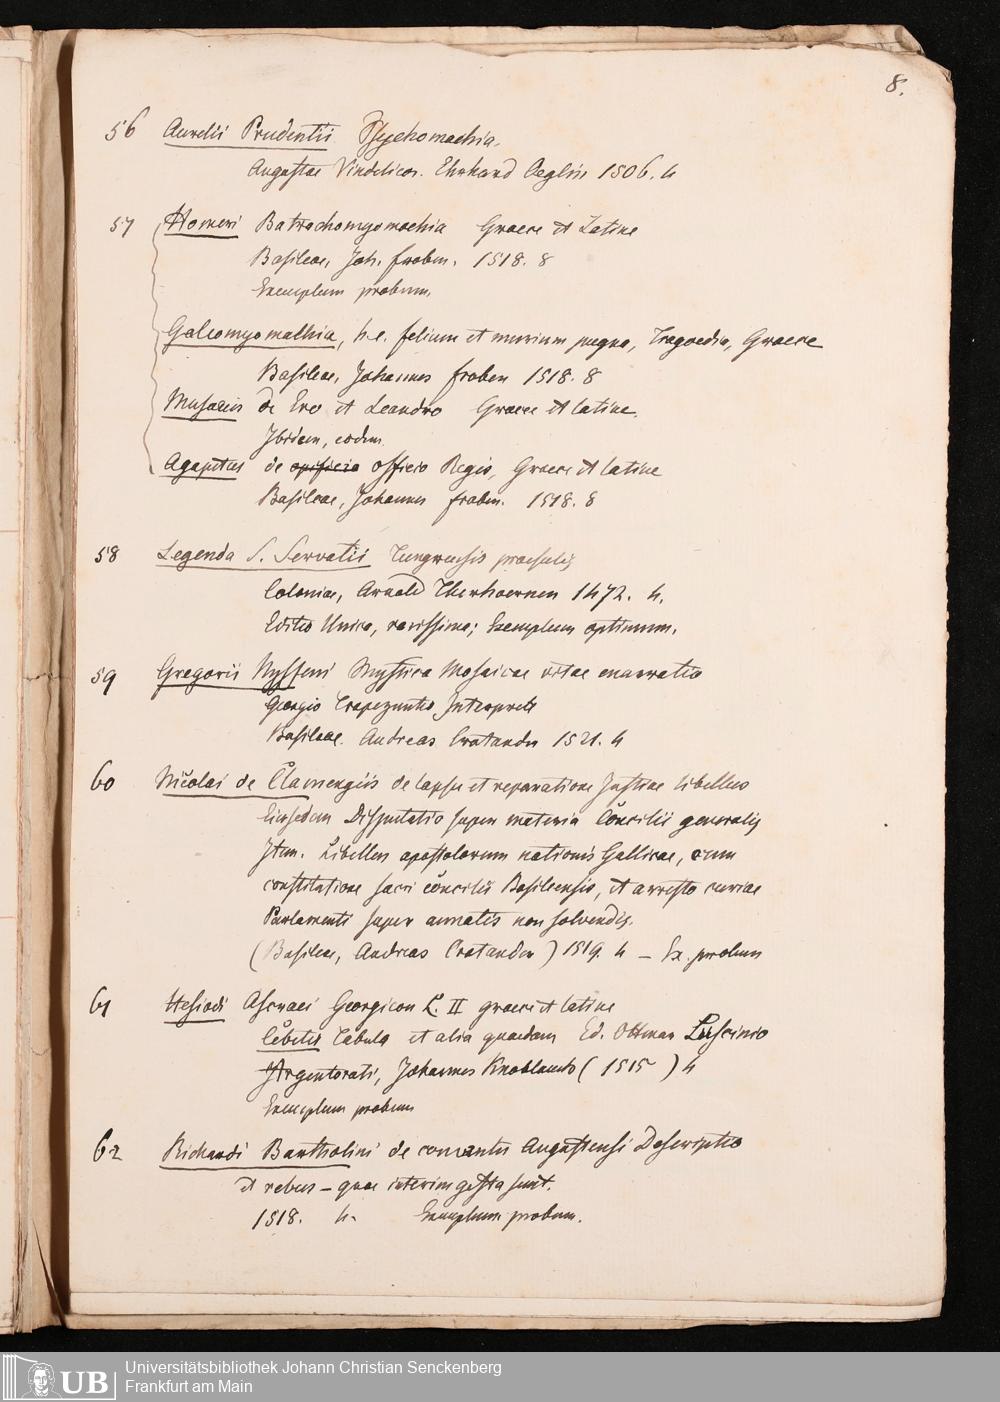 8.
56 Aurelii Prudentii Psychomachia.
Augustae Vindelicor. Ehrhard Oeglin 1506. 4
57 Homeri Batrachomyomachia Graece et Latine
Basileae, Joh. froben. 1518. 8
Exemplum probum.
Galeomyomachia, h. e. felium et murium pugna, Tragoedia, Graece
Basileae, Johannes froben 1518. 8
Musaeus de Ero et Leandro Graece et latine.
Ibidem, eodem
Agapetus de opificio officio Regis, Graece et latine
Basileae, Johannes froben. 1518. 8
58 Legenda S. Servatii Tungrensis praesulis
Coloniae, Arnold Therhoernen 1472. 4.
Editio Unica, rarissima; Exemplum optimum.
59 Gregorii Nysseni Mystica Mosaicae vitae enarratio
Georgio Trapezuntio Interprete
Basileae. Andreas Cratander 1521. 4
60 Nicolai de Clamengiis de lapsu et reparatione Justitiae libellus
Eiusdem Disputatio super materia Concilii generalis
Item. Libellus apostolorum nationis Gallicae, cum
constitutione sacri concilii Basileensis, et arresto curiae
Parlamenti super annatis non solvendis.
(Basileae, Andreas Cratander) 1519. 4 – Ex. probum
61 Hesiodi Ascraei Georgicon L. II graece et latine
Cebetis Tabula et alia quaedam Ed. Ottmar Luscinio
Argentorati, Johannes Knoblauch (1515) 4
Exemplum probum
62 Richardi Bartholini de conventu Augustensi Descriptio
et rebus – quae interim gesta sunt.
1518. 4. Exemplum probum.
UB Universitätsbibliothek Johann Christian Senckenberg
Frankfurt am Main